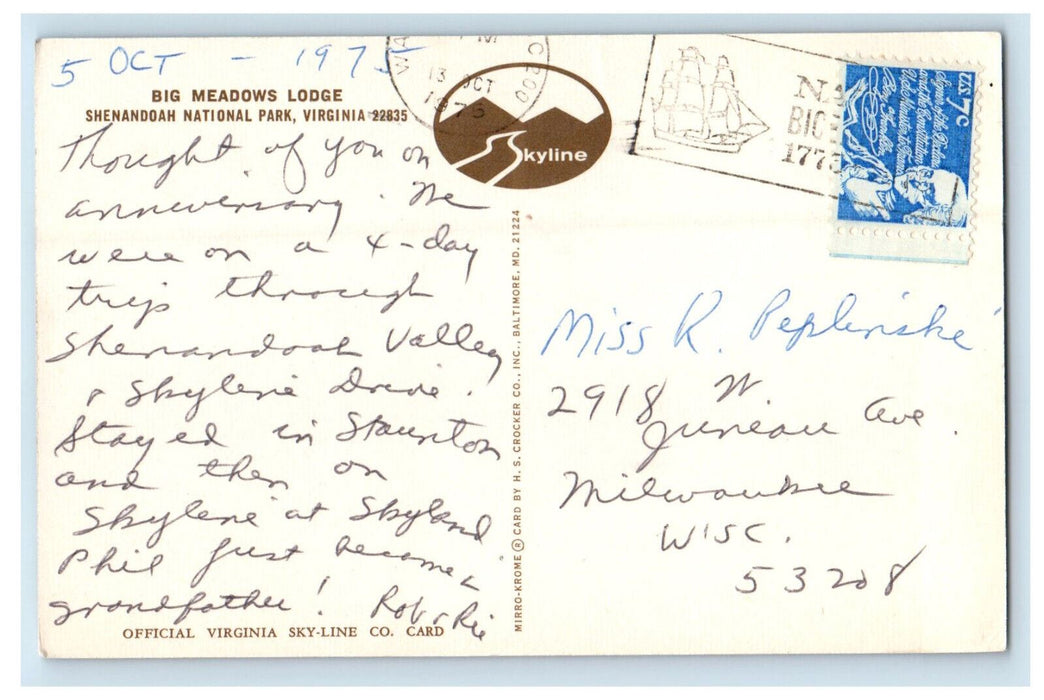 5 OCT - 1975
BIG MEADOWS LODGE
SHENANDOAH NATIONAL PARK, VIRGINIA 22835
Thought of you on
anniversary. We
were on a 4-day
trip through
Shenandoah Valley
& Skyline Drive.
Stayed in Staunton
and then on
Skyline at Skyland
Phil just became a
grandfather! Rob & Rie
OFFICIAL VIRGINIA SKY-LINE CO. CARD
13 OCT
1975
Skyline
MIRRO-KROME ® CARD BY H. S. CROCKER CO., INC., BALTIMORE, MD. 21224
BIC
177
US 7c
Miss R. Peplinske
2918 W.
Juneau Ave.
Milwaukee
WISC.
53208